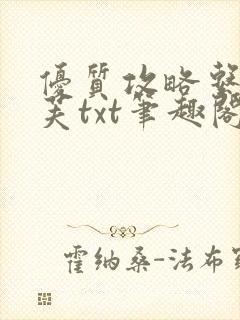 優質攻略
笑txt筆趣閣
霍納桑-法布